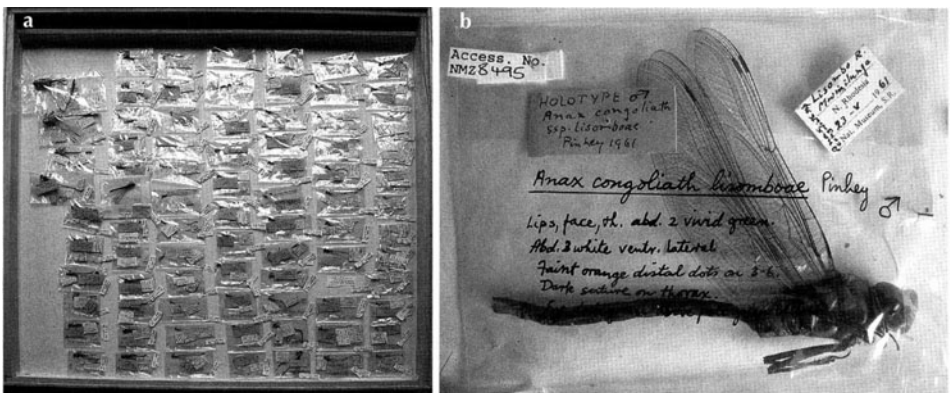 a
b
Access. No.
NMZ8495
HOLOTYPE ♂
Anax congoliath
ssp. lisomboae
Pinhey 1961
Lisombo R.
Mwinilunga
N. Rhodesia
23 - V - 1961
Nat. Museum, S.R.
Anax congoliath lisomboae Pinhey
♂
Lips, face, th. abd. 2 vivid green.
Abd. 3 white ventr. lateral
Faint orange distal dots on 3-6.
Dark suture on thorax.